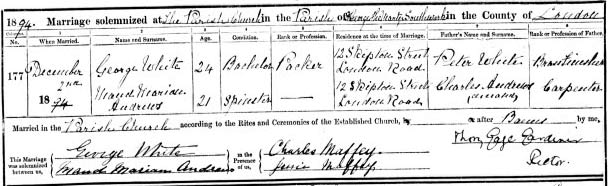 1894. Marriage solemnized at The Parish Church in the Parish of George the Martyr Southwark in the County of London
No. When Married. Name and Surname. Age. Condition. Rank or Profession. Residence at the time of Marriage. Father's Name and Surname. Rank or Profession of Father.
177 December 2nd 1894
George White 24 Bachelor Packer 12 Skipton Street London Road. Peter White Brass Finisher
Maud Mariam Andrews 21 Spinster — 12 Skipton Street London Road Charles Andrews (deceased) Carpenter
Married in the Parish Church according to the Rites and Ceremonies of the Established Church, by or after Banns by me,
This Marriage was solemnized between us, George White
Maud Mariam Andrews
in the Presence of us, Charles Maffey
Maffey
Rector.